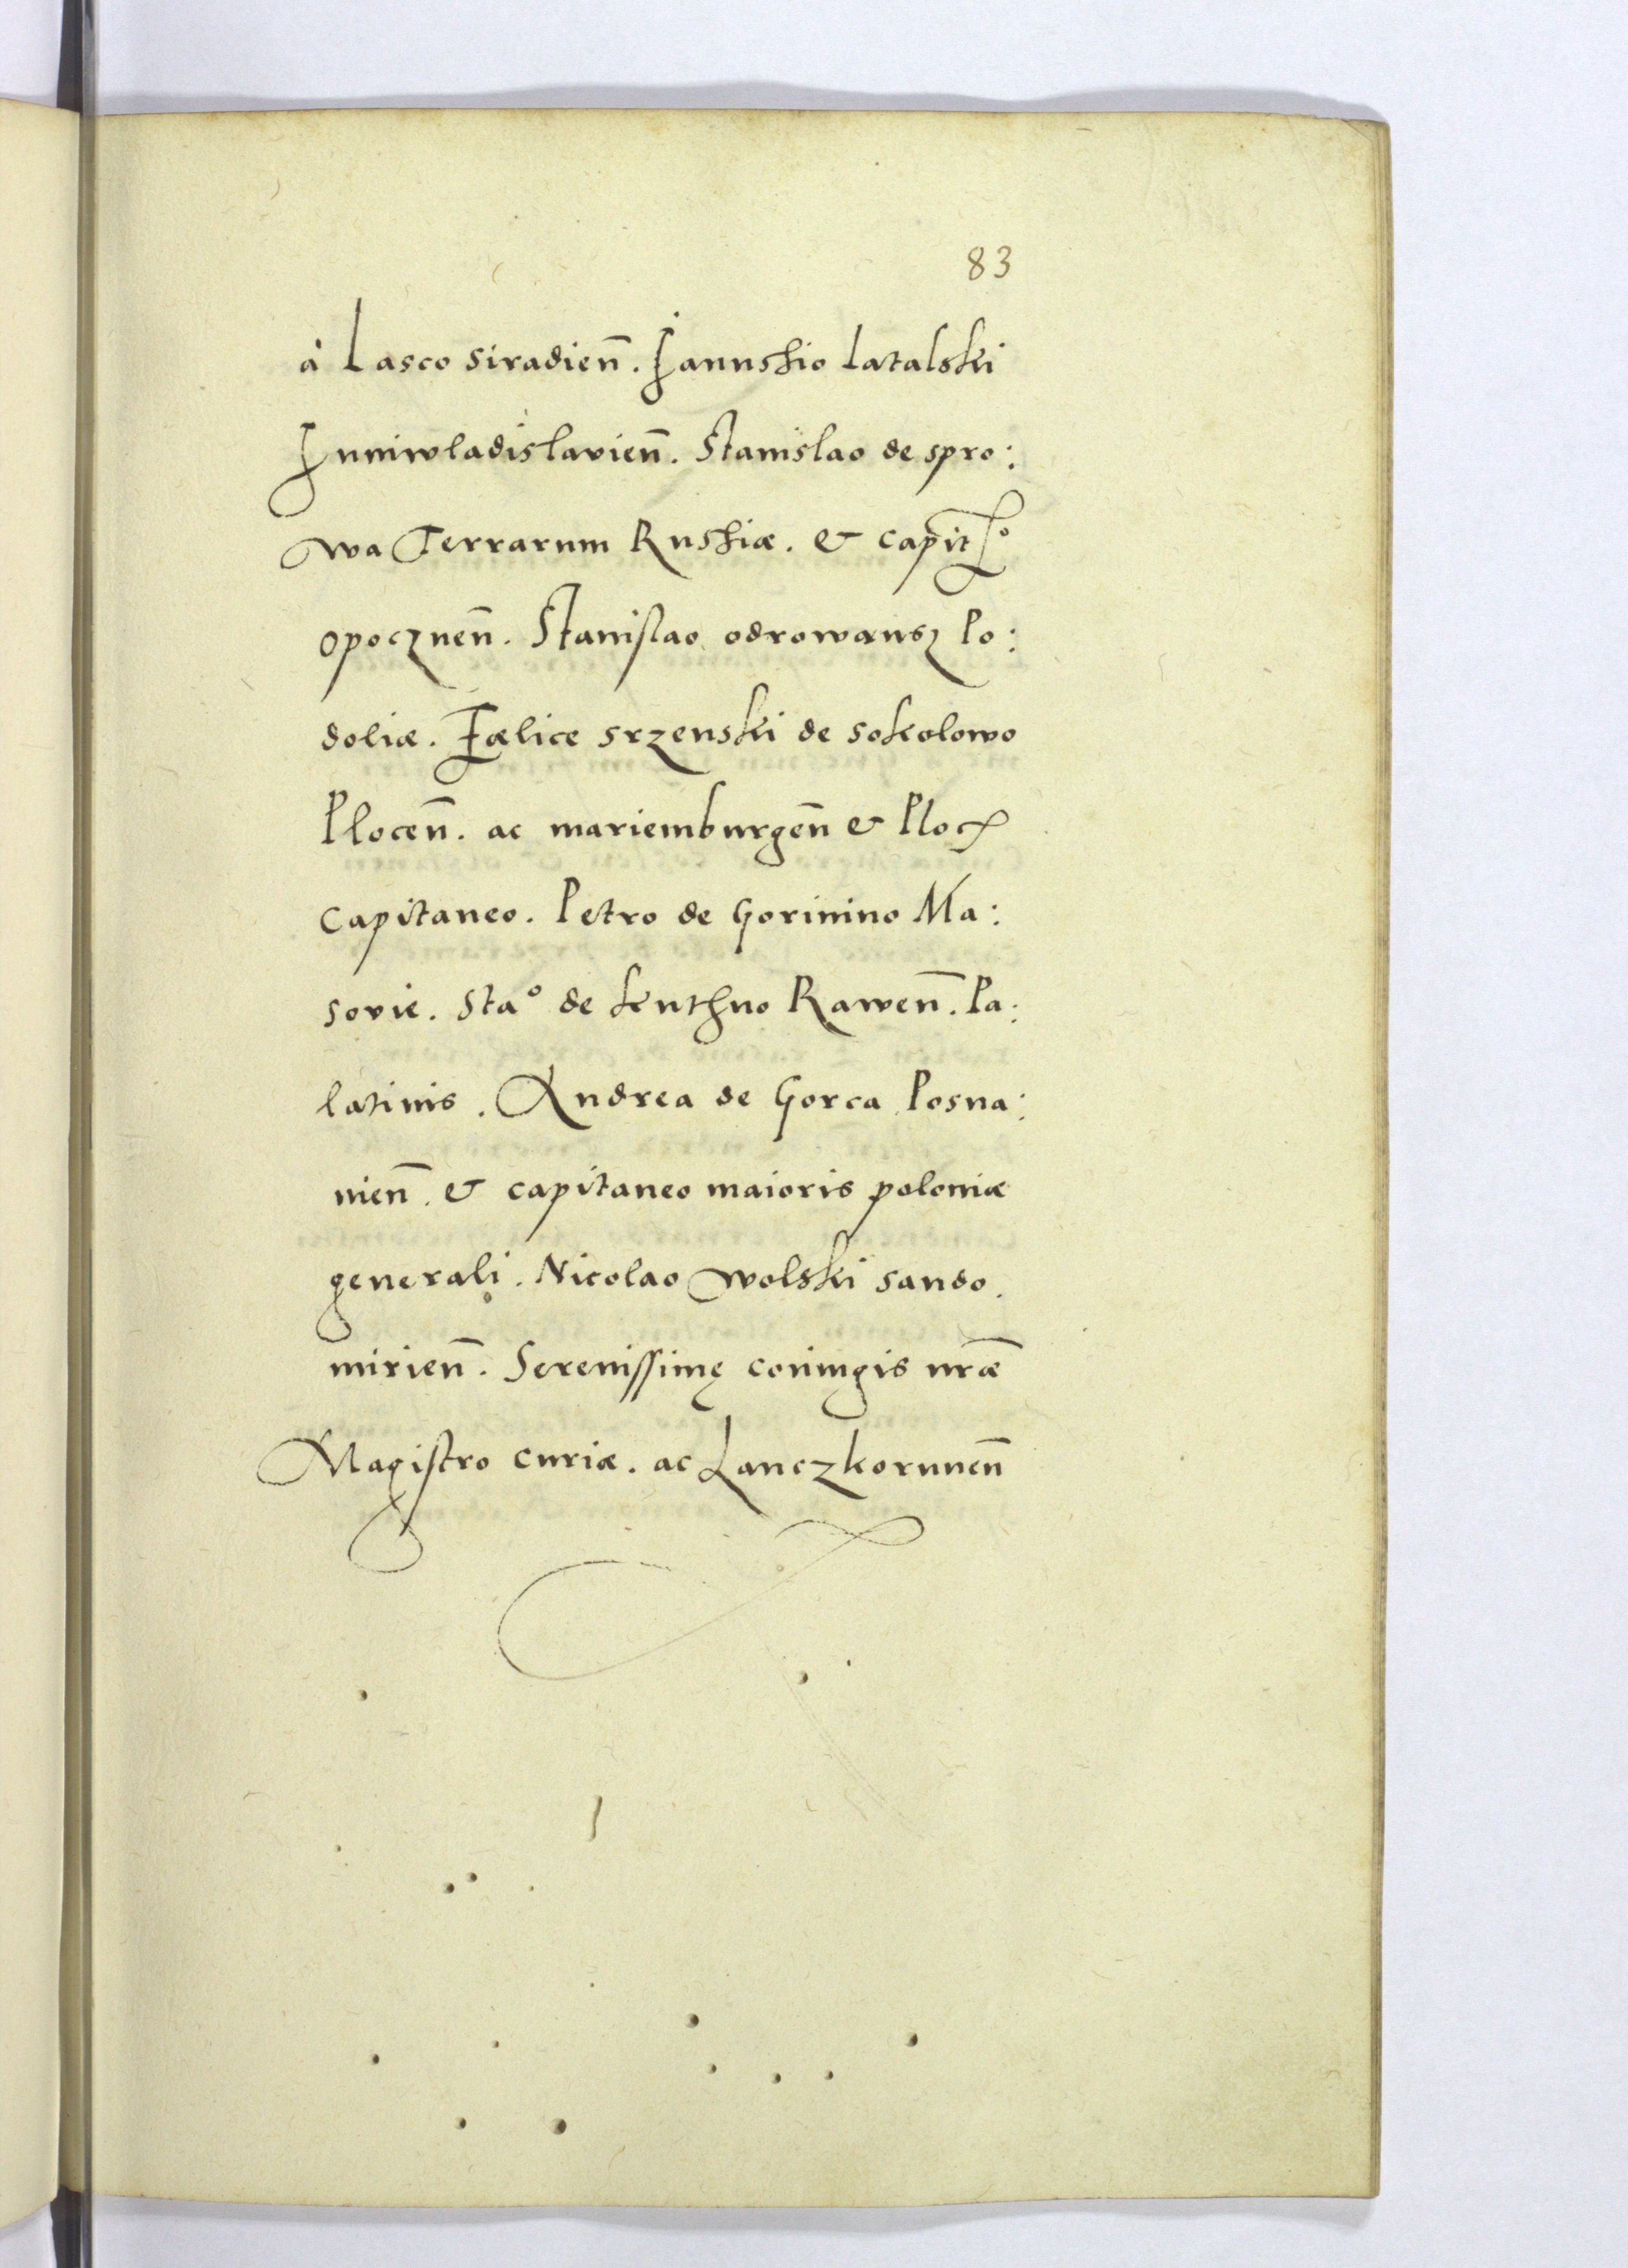 83
à Lasco siradień. Iannschio Latalski
Iuniwladislavień. Stanislao de spro:
wa Terrarum Russiæ. & capit^o
opoczneñ. Stanislao odrowansz Po:
doliæ. Fælice srzenski de sokolowo
Ploceñ. ac mariemburgeñ & Ploc
Capitaneo. Petro de Gorinino Ma:
sovie. Sta° de kuthno Raweñ. Pa:
latinis. Andrea de Gorca Posna:
nieñ. & capitaneo maioris poloniæ
generali. Nicolao wolski sando.
mirieñ. Serenissimę coniugis nrǣ
Magistro curiæ. ac Lanczkoruneñ